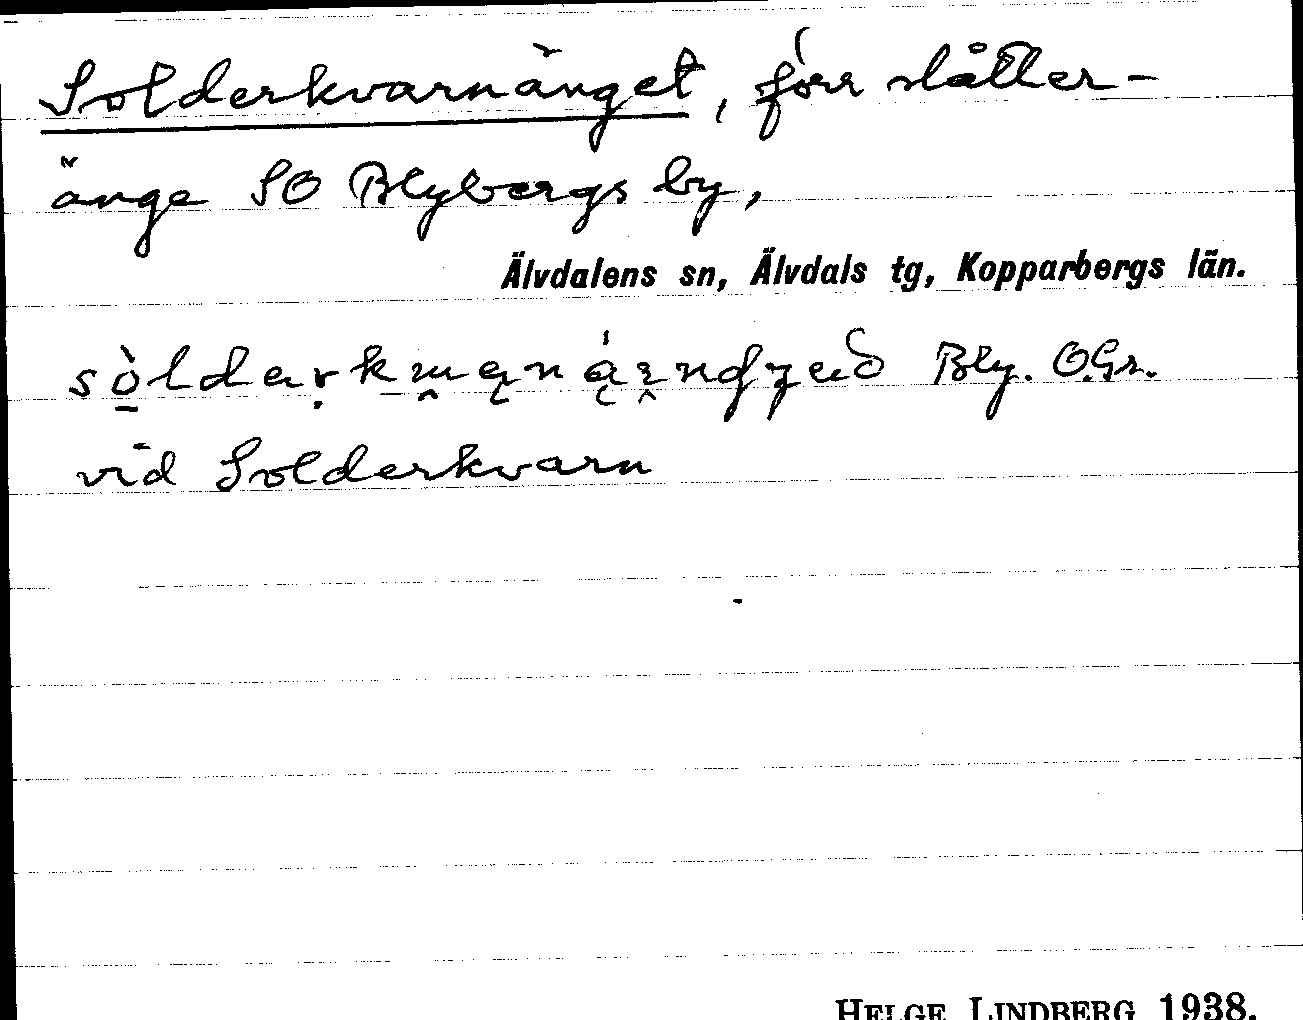 Solderkvarnänget, förr slåtter-
änge SO Blybergs by,
Älvdalens sn, Älvdals tg, Kopparbergs län.
Bly. O.Gr.
vid Solderkvarn
HELGE LINDBERG 1938.